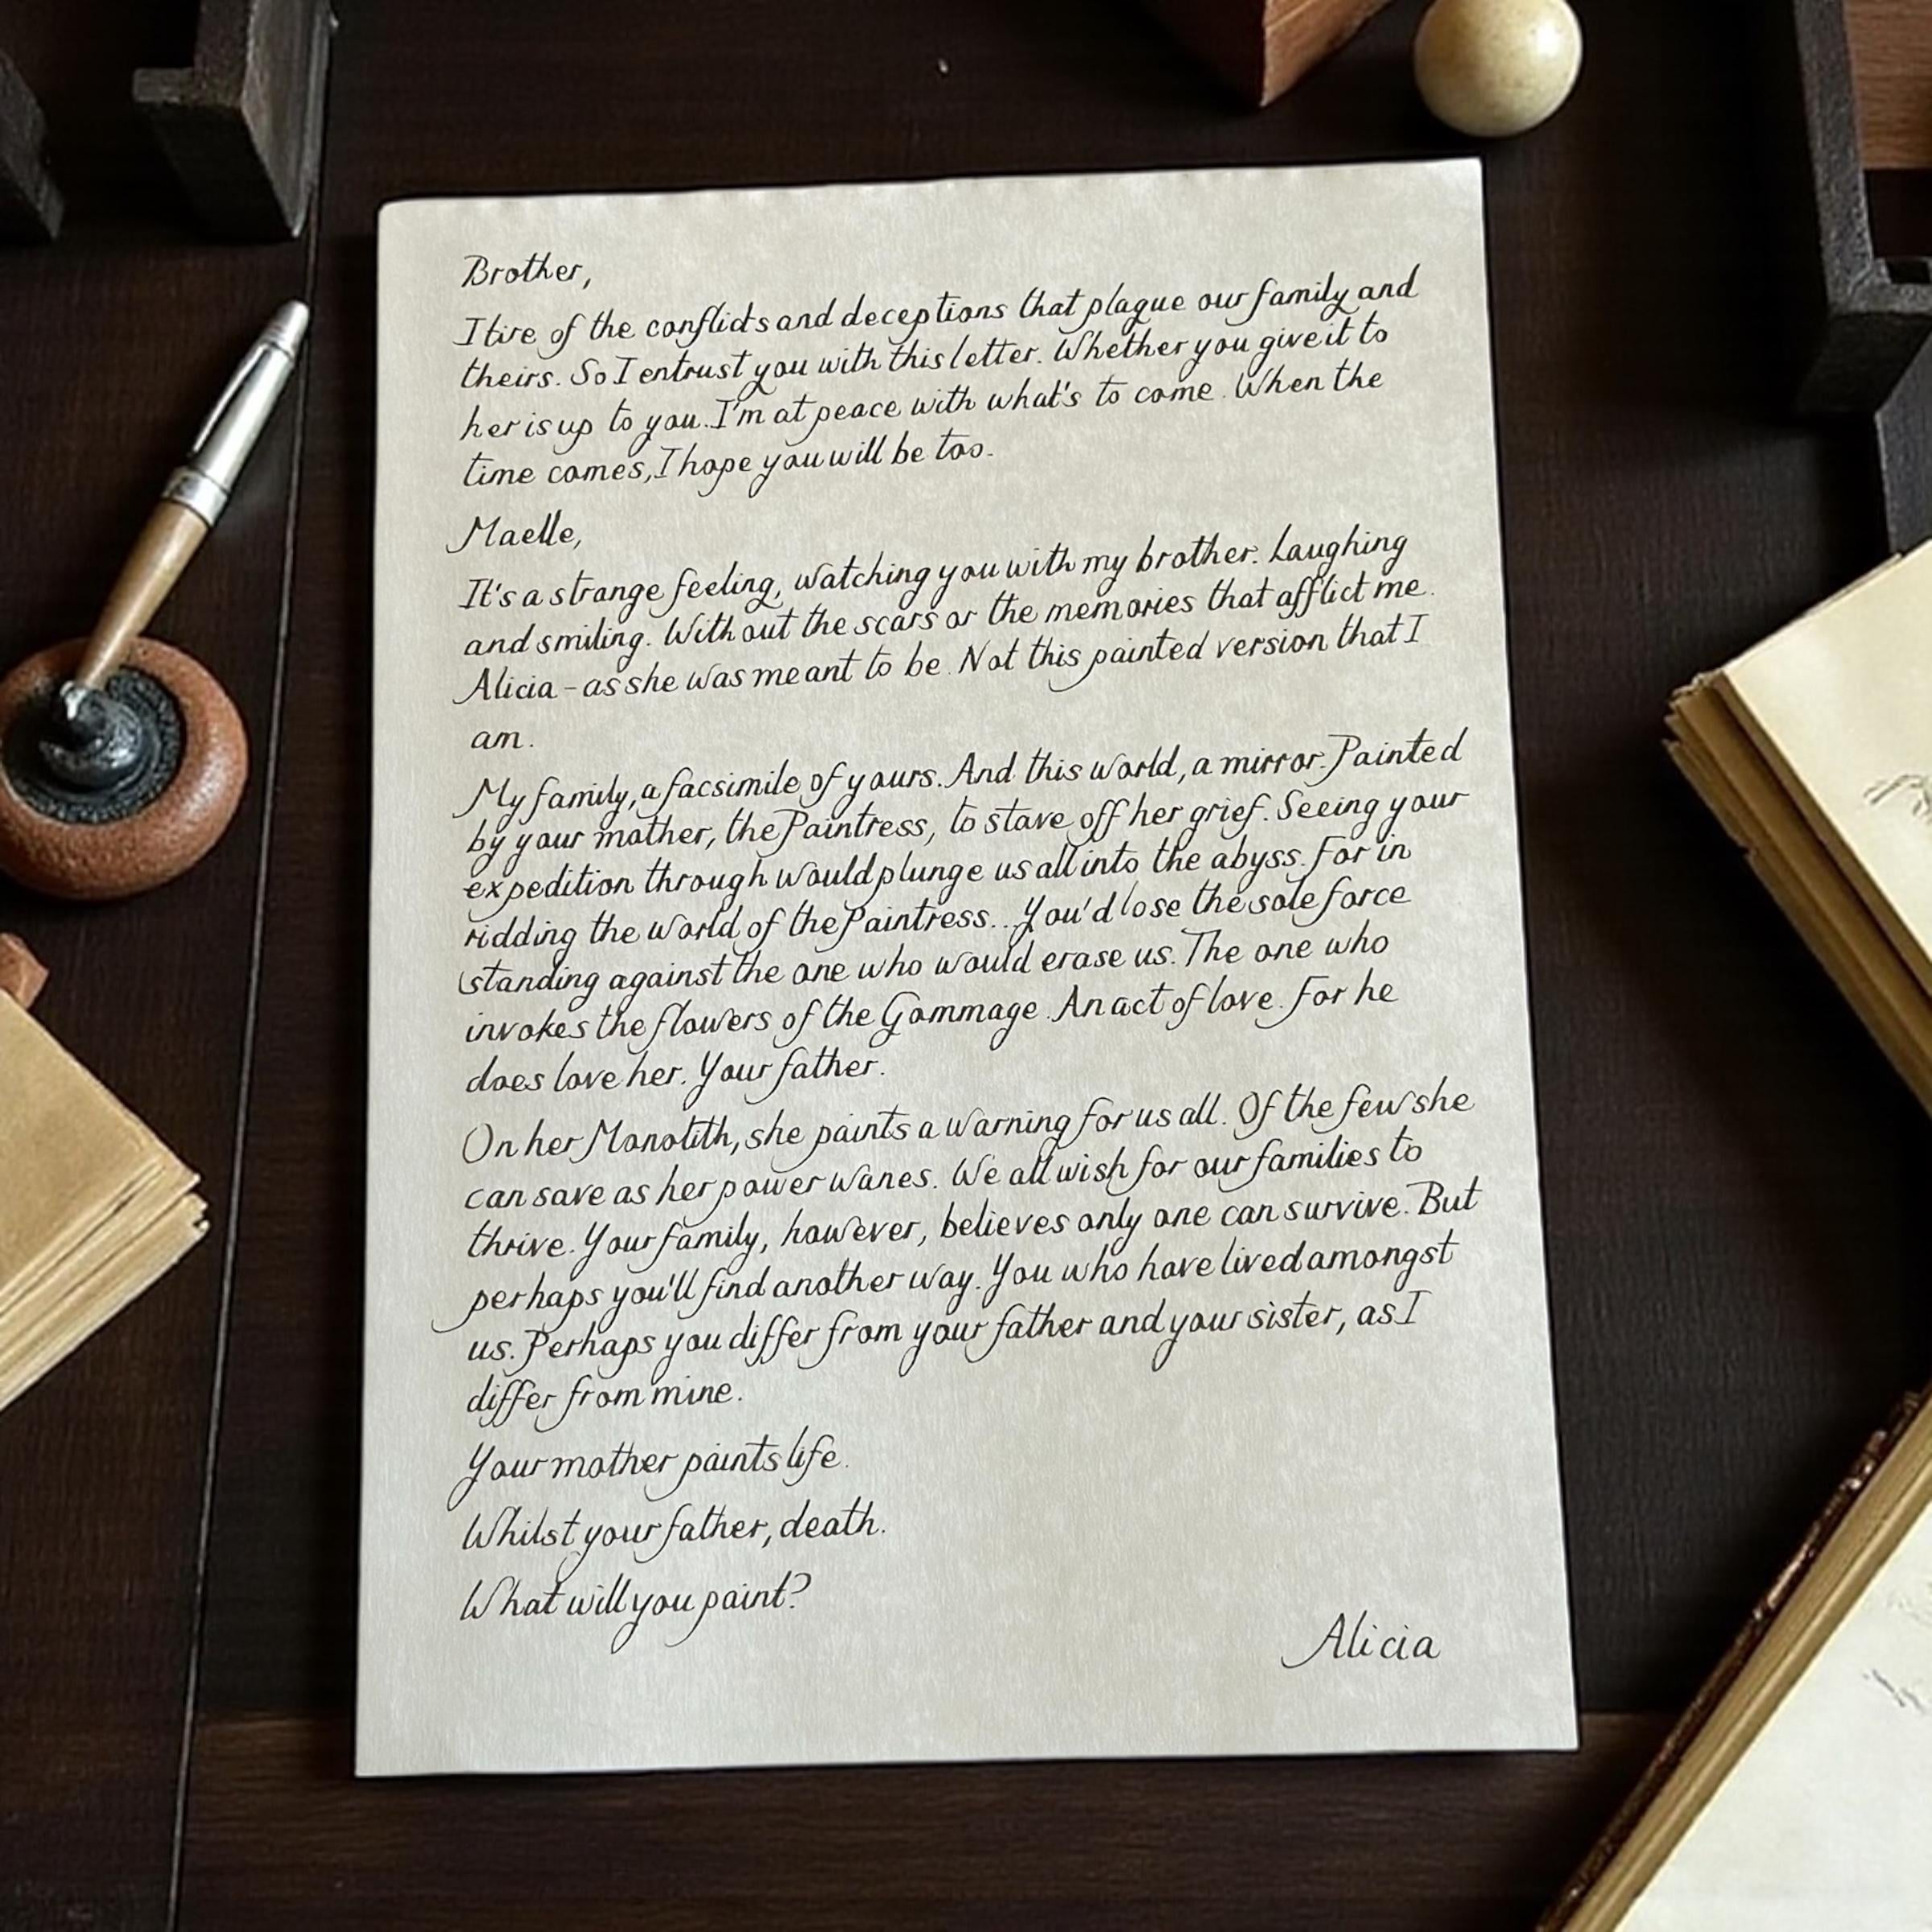 Brother,
I tire of the conflicts and deceptions that plague our family and
theirs. So I entrust you with this letter. Whether you give it to
her is up to you. I'm at peace with what's to come. When the
time comes, I hope you will be too.
Maelle,
It's a strange feeling, watching you with my brother. Laughing
and smiling. Without the scars or the memories that afflict me.
Alicia - as she was meant to be. Not this painted version that I
am.
My family, a facsimile of yours. And this world, a mirror. Painted
by your mother, the Paintress, to stave off her grief. Seeing your
expedition through would plunge us all into the abyss. For in
ridding the world of the Paintress... You'd lose the sole force
standing against the one who would erase us. The one who
invokes the flowers of the Gommage. An act of love. For he
does love her. Your father.
On her Monolith, she paints a warning for us all. Of the few she
can save as her power wanes. We all wish for our families to
thrive. Your family, however, believes only one can survive. But
perhaps you'll find another way. You who have lived amongst
us. Perhaps you differ from your father and your sister, as I
differ from mine.
Your mother paints life.
Whilst your father, death.
What will you paint?
Alicia